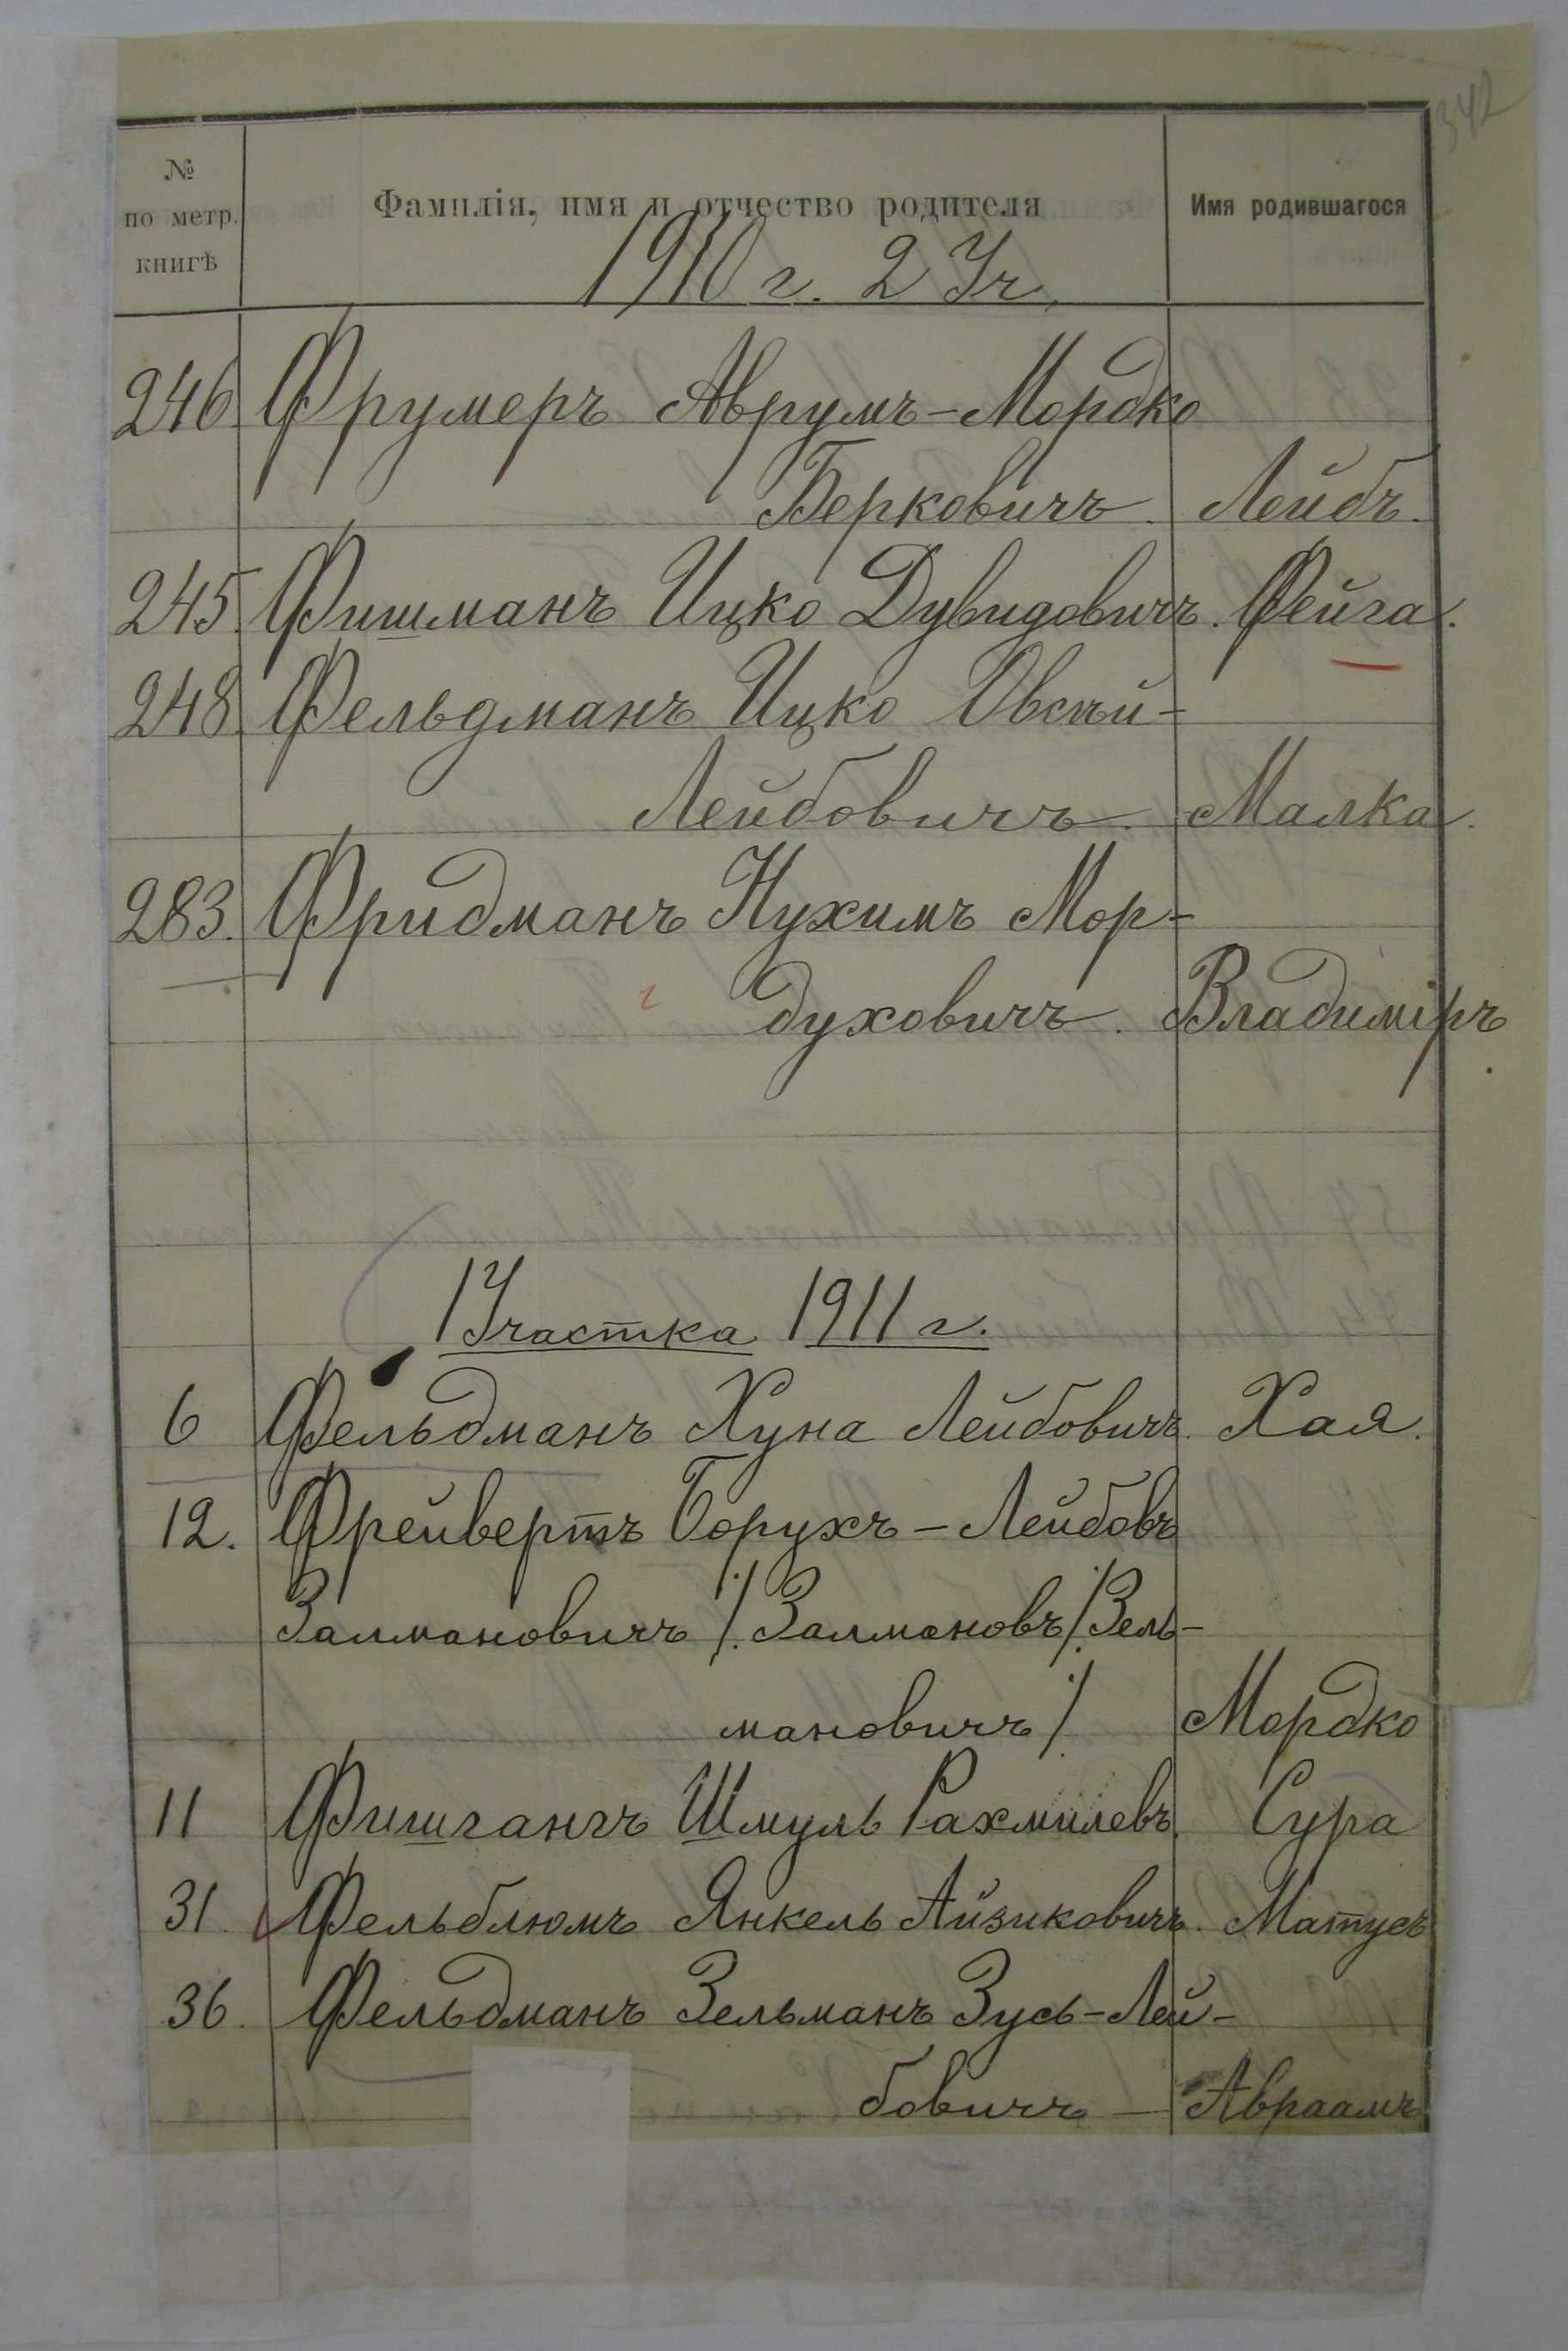 342
№ по метр. книгѣ Фамилія, имя и отчество родителя Имя родившагося
1910 г. 2 Уч.
246 Фрумеръ Аврумъ-Мордко
Берковичъ. Лейбъ.
245 Фишманъ Ицко Дувидовичъ. Фейга.
248 Фельдманъ Ицко Овсѣй-
Лейбовичъ. Малка.
283. Фридманъ Нухимъ Мор-
духовичъ. Владиміръ.
1 Участка 1911 г.
6 Фельдманъ Хуна Лейбовичъ. Хая.
12. Фрейвертъ Борухъ-Лейбовъ
Залмановичъ /Залмановъ/Зель-
мановичъ/ Мордко
11 Фишгангъ Шмуль Рахмилевъ. Сура
31 Фельблюмъ Янкель Айзиковичъ. Матусъ
36. Фельдманъ Зельманъ Зусь-Лей-
бовичъ - Авраамъ